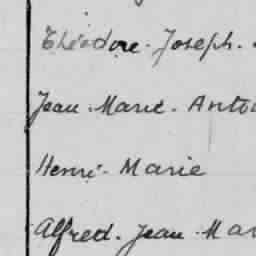 Théodore. Joseph.
Jean. Marie. Anto
Henri. Marie
Alfred. Jean. Mar